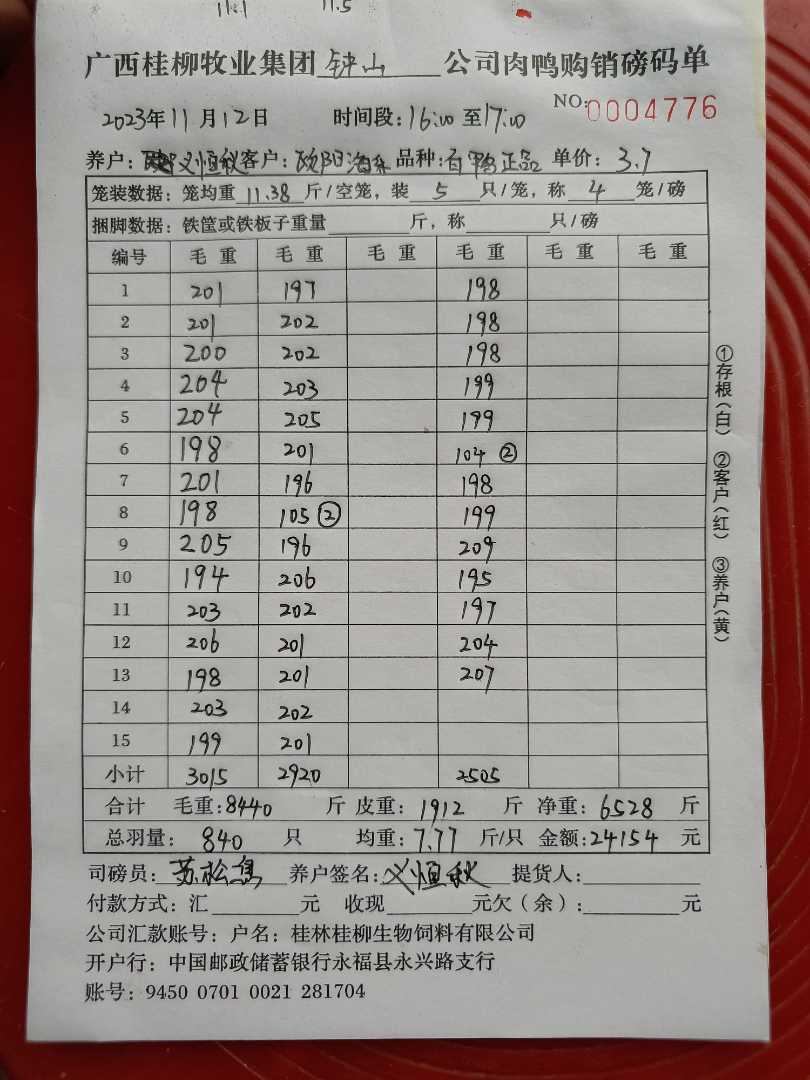 11.1 11.5
广西桂柳牧业集团 钟山 公司肉鸭购销磅码单
NO:0004776
2023年11月12日 时间段:16:00至17:00
养户: 义恒秋 客户: 欧阳海 品种: 白鸭正品 单价: 3.7
笼装数据: 笼均重 11.38 斤/空笼, 装 5 只/笼, 称 4 笼/磅
捆脚数据: 铁筐或铁板子重量 斤, 称 只/磅
编号 毛重 毛重 毛重 毛重 毛重 毛重
1 201 197 198
2 201 202 198
3 200 202 198
4 204 203 199
5 204 205 199
6 198 201 104 ②
7 201 196 198
8 198 105 ② 199
9 205 196 209
10 194 206 195
11 203 202 197
12 206 201 204
13 198 201 207
14 203 202
15 199 201
小计 3015 2920 2505
合计 毛重:8440 斤 皮重: 1912 斤 净重: 6528 斤
总羽量: 840 只 均重: 7.77 斤/只 金额: 24154 元
司磅员: 苏松 养户签名: 义恒秋 提货人:
付款方式: 汇 元 收现 元欠(余): 元
公司汇款账号: 户名: 桂林桂柳生物饲料有限公司
开户行: 中国邮政储蓄银行永福县永兴路支行
账号: 9450 0701 0021 281704
①存根(白) ②客户(红) ③养户(黄)